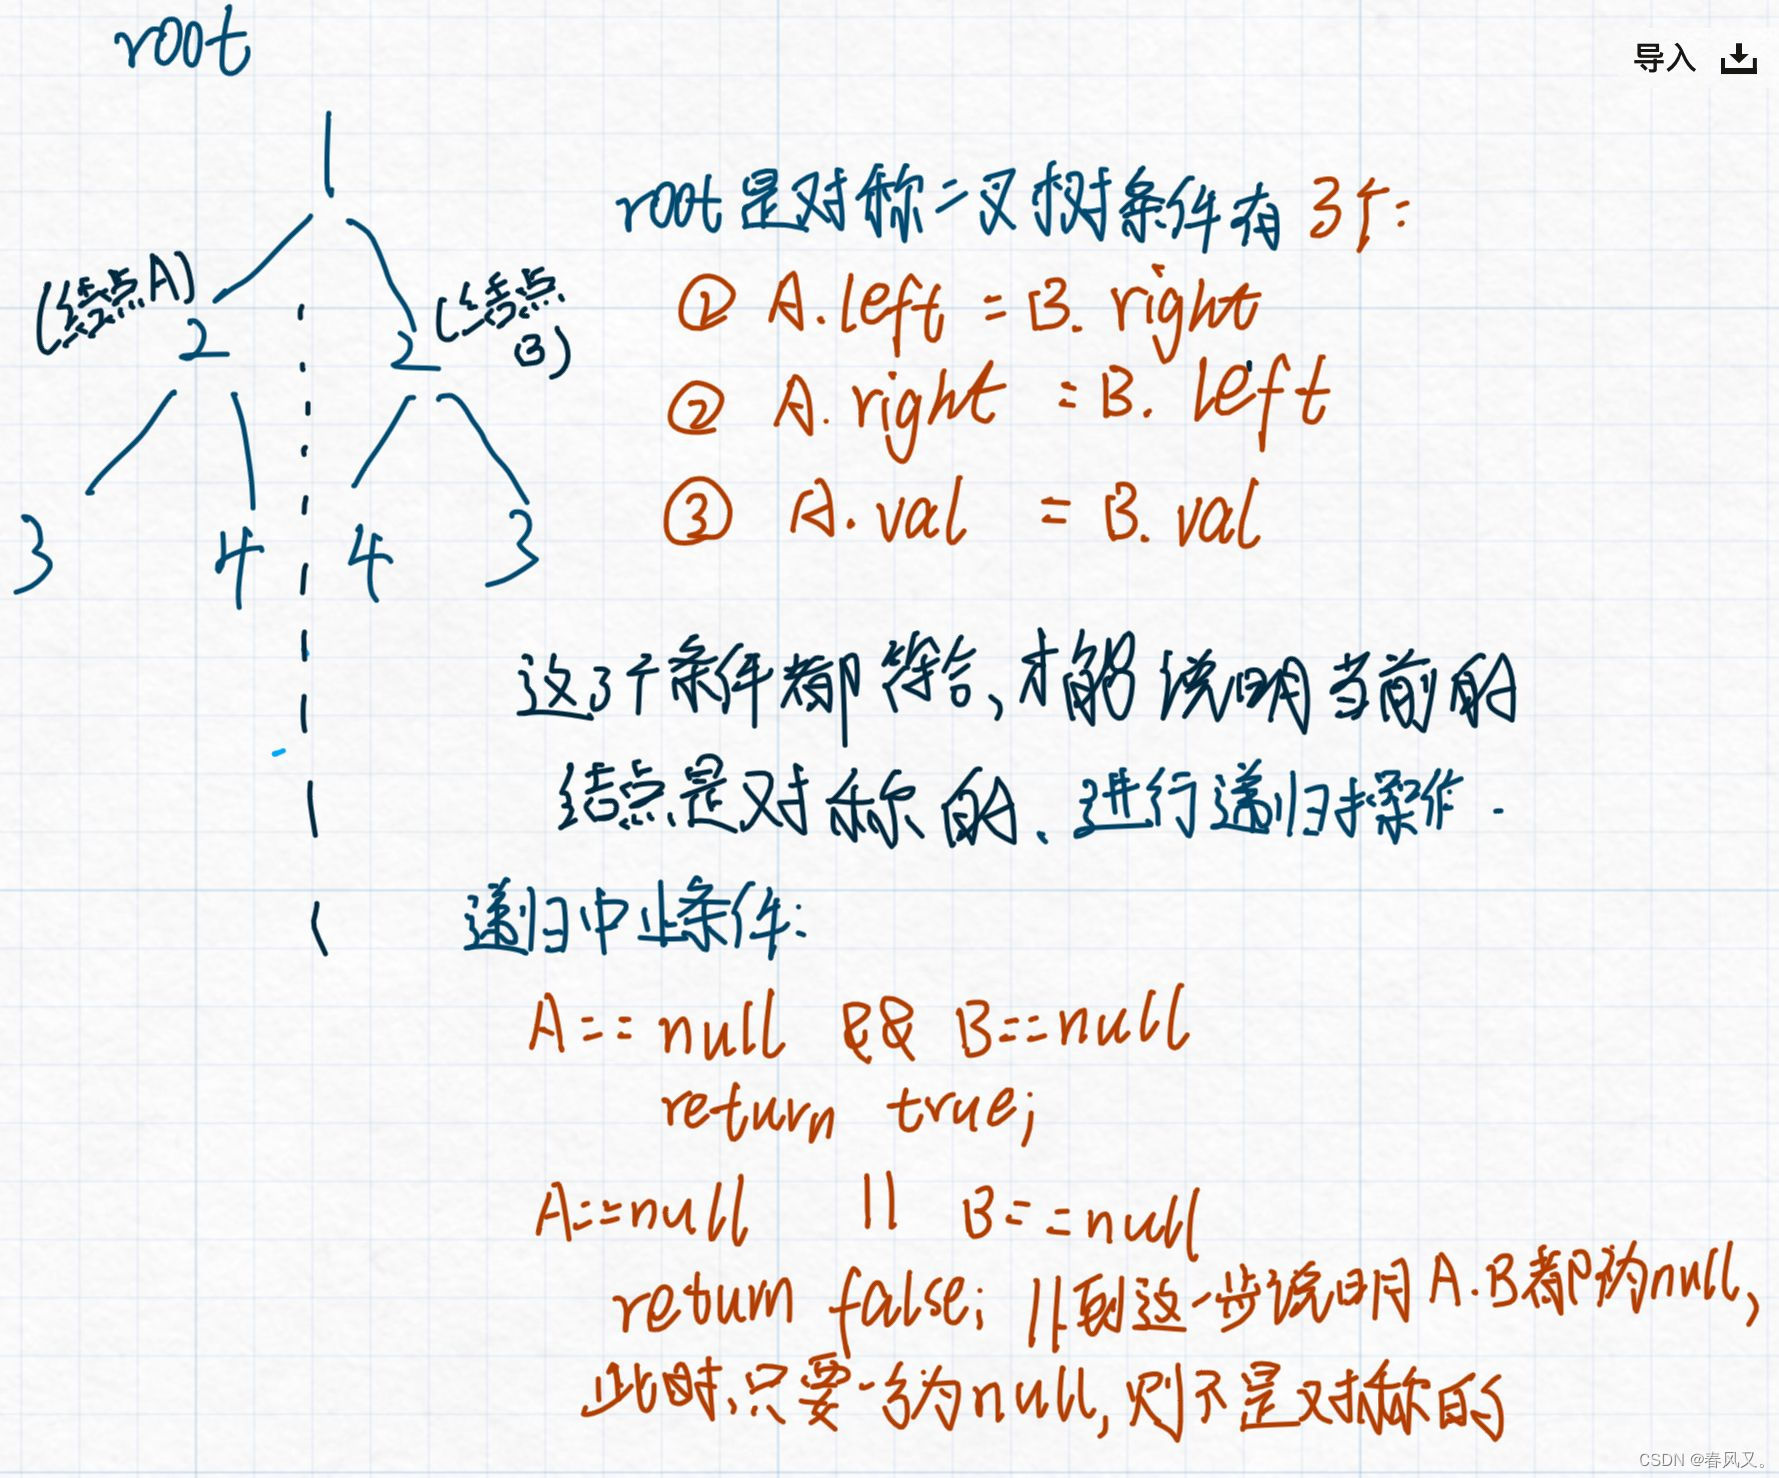 root
导入
1
root是对称二叉树条件有3个:
(结点A)
2
2
(结点
B)
① A.left = B.right
② A.right = B.left
③ A.val = B.val
3 4 4 3
这3个条件都符合、才能说明当前的
结点是对称的、进行递归操作.
递归中止条件:
A==null && B==null
return true;
A==null || B==null
return false; //到这一步说明A.B都为null,
此时、只要一方为null,则不是对称的
CSDN @春风又。